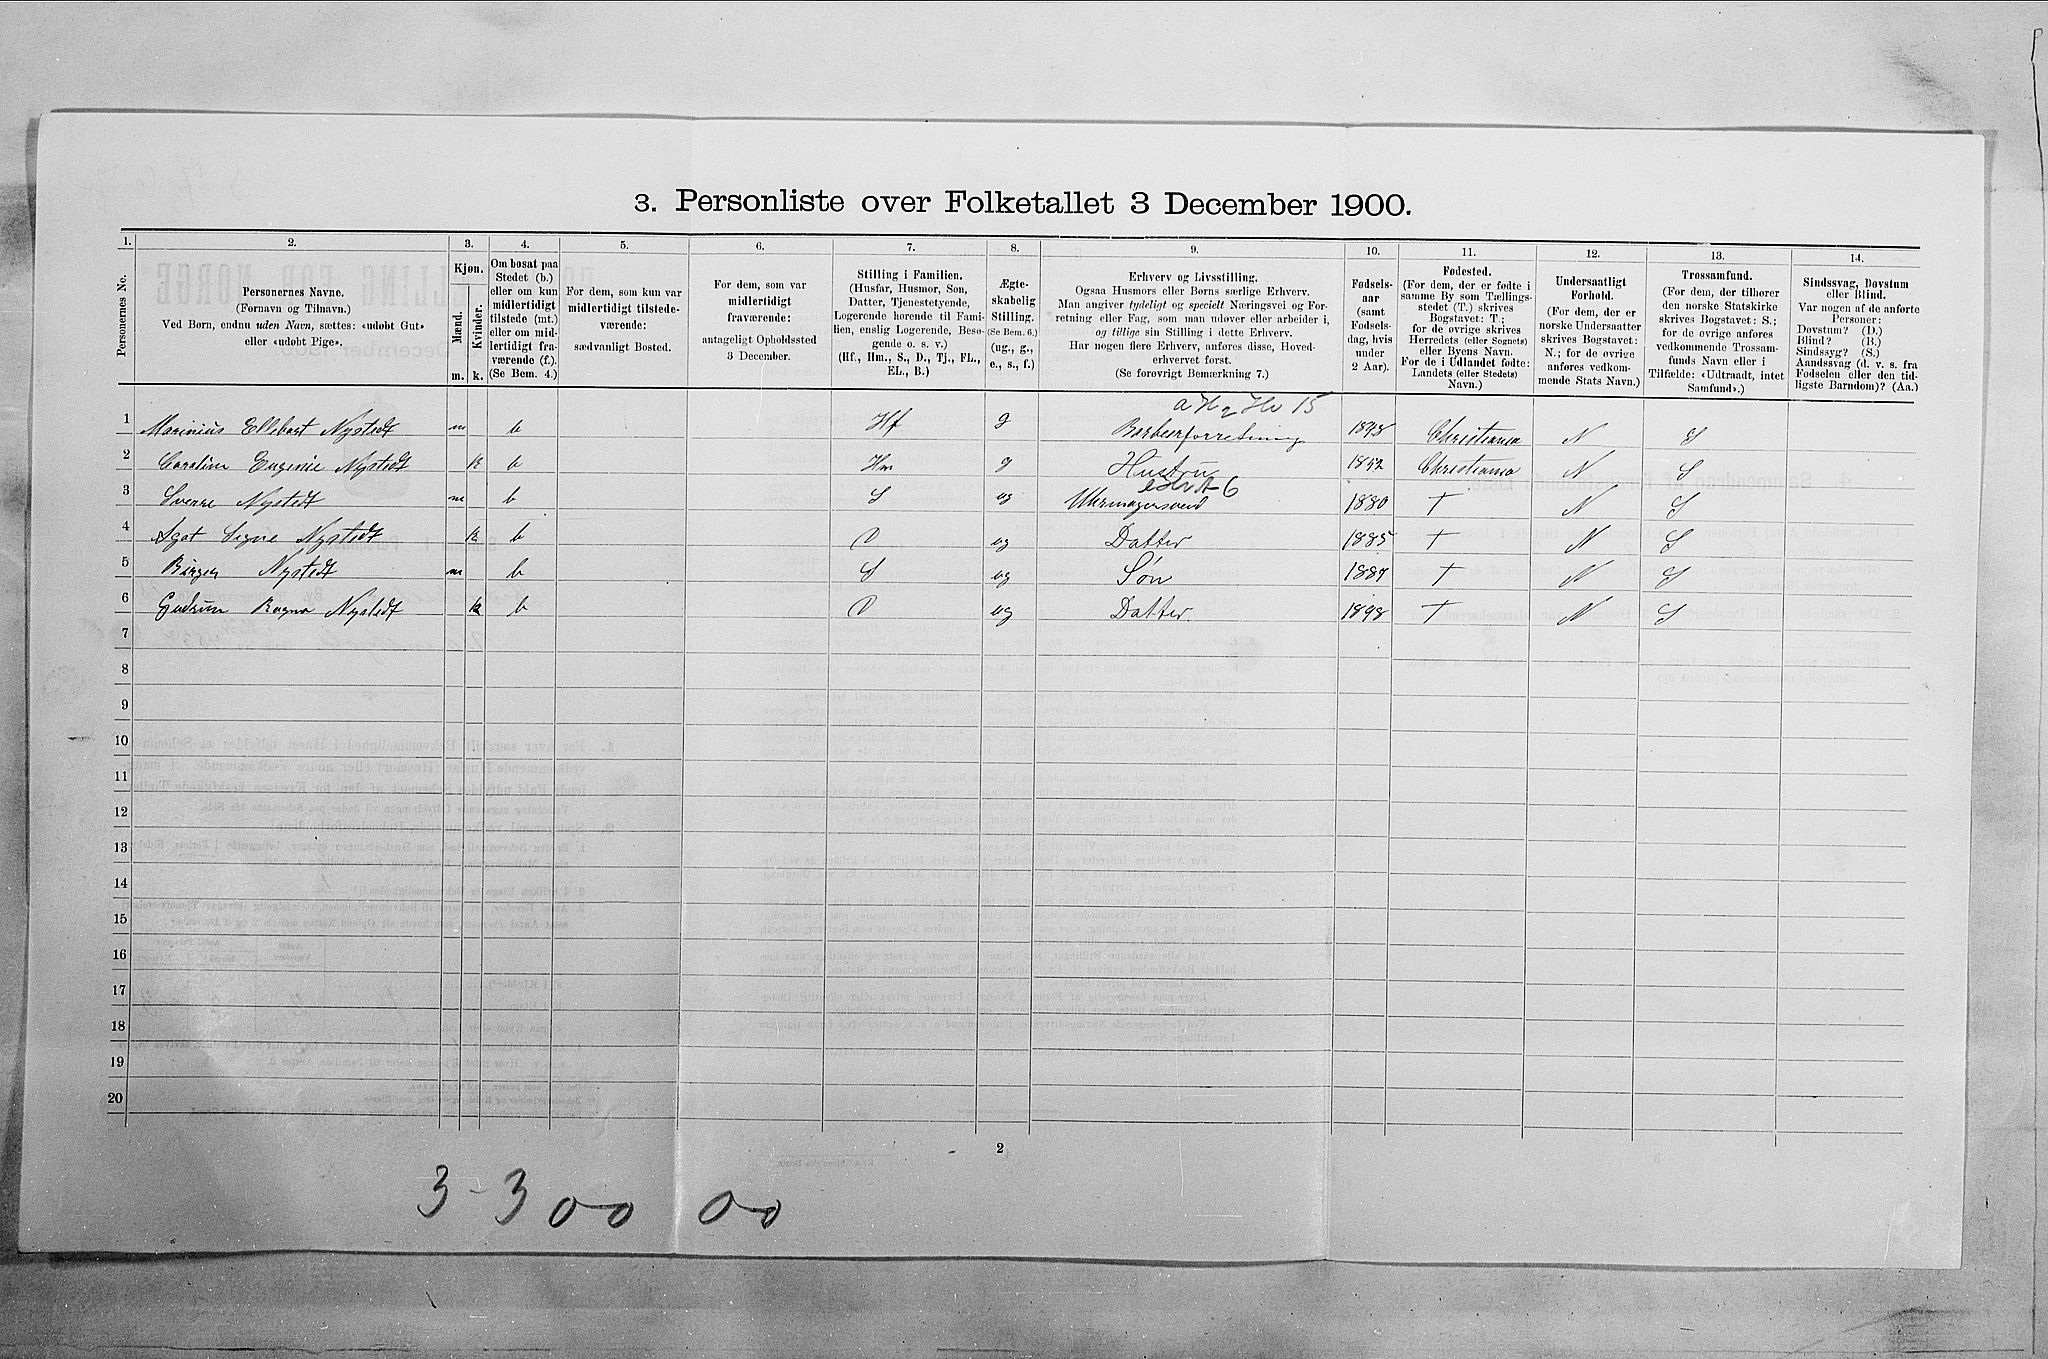 3. Personliste over Folketallet 3 December 1900.
1. 2. 3. 4. 5. 6. 7. 8. 9. 10. 11. 12. 13. 14.
Personernes No.
Personernes Navne.
(Fornavn og Tilnavn.)
Ved Børn, endnu uden Navn, sættes: «udøbt Gut»
eller «udøbt Pige».
Kjøn.
Mænd. Kvinder.
m. k.
Om bosat paa
Stedet (b.)
eller om kun
midlertidigt
tilstede (mt.)
eller om mid-
lertidigt fra-
værende (f.).
(Se Bem. 4.)
For dem, som kun var
midlertidigt tilstede-
værende:
sædvanligt Bosted.
For dem, som var
midlertidigt
fraværende:
antageligt Opholdssted
3 December.
Stilling i Familien.
(Husfar, Husmor, Søn,
Datter, Tjenestetyende,
Logerende hørende til Fami-
lien, enslig Logerende, Besø-
gende o. s. v.)
(Hf., Hm., S., D., Tj., FL.,
EL., B.)
Ægte-
skabelig
Stilling.
(Se Bem. 6.)
(ug., g.,
e., s., f.)
Erhverv og Livsstilling.
Ogsaa Husmors eller Børns særlige Erhverv.
Man angiver tydeligt og specielt Næringsvei og For-
retning eller Fag, som man udøver eller arbeider i,
og tillige sin Stilling i dette Erhverv.
Har nogen flere Erhverv, anføres disse, Hoved-
erhvervet først.
(Se forøvrigt Bemærkning 7.)
Fødsels-
aar
(samt
Fødsels-
dag, hvis
under
2 Aar).
Fødested.
(For dem, der er fødte i
samme By som Tællings-
stedet (T.) skrives
Bogstavet: T.;
for de øvrige skrives
Herredets (eller Sognets)
eller Byens Navn.
For de i Udlandet fødte:
Landets (eller Stedets)
Navn.)
Undersaatligt
Forhold.
(For dem, der er
norske Undersaatter
skrives Bogstavet:
N.; for de øvrige
anføres vedkom-
mende Stats Navn.)
Trossamfund.
(For dem, der tilhører
den norske Statskirke
skrives Bogstavet: S.;
for de øvrige anføres
vedkommende Trossam-
funds Navn eller i
Tilfælde: «Udtraadt, intet
Samfund».)
Sindssvag, Døvstum
eller Blind.
Var nogen af de anførte
Personer:
Døvstum? (D.)
Blind? (B.)
Sindssyg? (S.)
Aandssvag (d. v. s. fra
Fødselen eller den tid-
ligste Barndom)? (Aa.)
15
1 Marinius Ellebart Nystedt m b Hf g Barberforretning Christiania N S
2 Caroline Eugenie Nystedt k b Hm g Hustru 1852 Christiania N S
6
3 Sverre Nystedt m b S ug Uhrmagersvend 1880 T N S
4 Agot Signe Nystedt k b D ug Datter 1885 T N S
5 Birger Nystedt m b S ug Søn 1887 T N S
6 Gudrun Ragna Nystedt k b D ug Datter. 1898 T N S
7
8
9
10
11
12
13
14
15
16
17
18
19
20
2
3-300 00